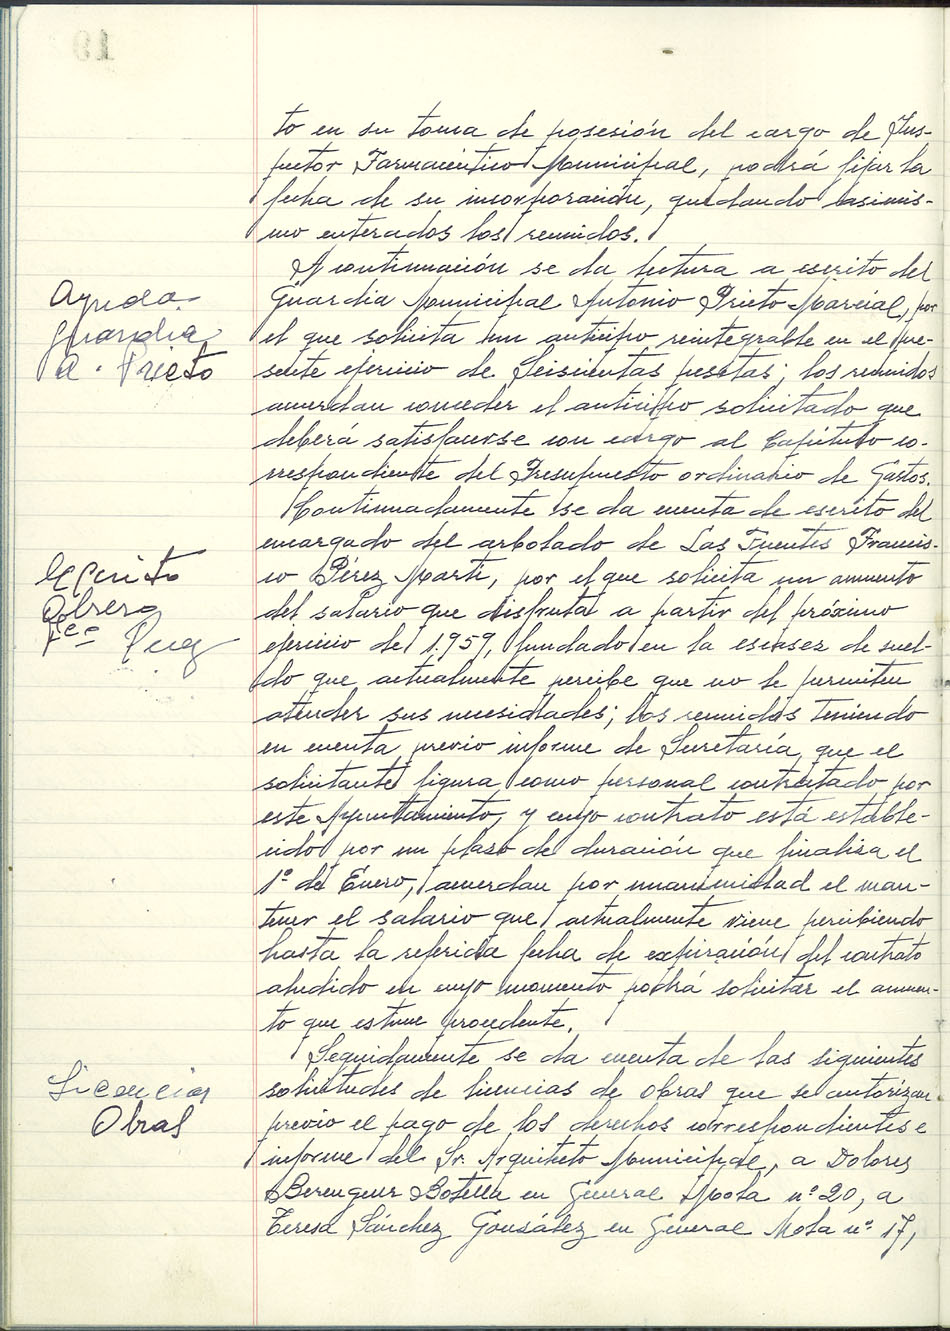 to en su toma de posesión del cargo de Ins-
pector Farmacéutico Municipal, podrá fijar la
fecha de su incorporación, quedando asimis-
mo enterados los reunidos.
Ayuda
guardia
A. Prieto
A continuación se da lectura a escrito del
Guardia Municipal Antonio Prieto Marcial, por
el que solicita un anticipo reintegrable en el pre-
sente ejercicio de Seiscientas pesetas; los reunidos
acuerdan conceder el anticipo solicitado que
deberá satisfacerse con cargo al Capítulo co-
rrespondiente del Presupuesto ordinario de Gastos.
Escrito
Obrero
Fco
Continuadamente se da cuenta de escrito del
encargado del arbolado de Las Fuentes Francis-
co Pérez Martí, por el que solicita un aumento
del salario que disfruta a partir del próximo
ejercicio de 1.959, fundado en la escasez de suel-
do que actualmente percibe que no le permiten
atender sus necesidades; los reunidos teniendo
en cuenta, previo informe de Secretaría, que el
solicitante figura como personal contratado por
este Ayuntamiento, y cuyo contrato está estable-
cido por un plazo de duración que finaliza el
1º de Enero, acuerdan por unanimidad el man-
tener el salario que actualmente viene percibiendo
hasta la referida fecha de expiración del contrato
aludido en cuyo momento podrá solicitar el aumen-
to que estime procedente.
Licencias
Obras
Seguidamente se da cuenta de las siguientes
solicitudes de licencias de obras que se autorizan
previo el pago de los derechos correspondientes e
informe del Sr. Arquitecto Municipal, a Dolores
Berenguer Botella en General Mola nº 20, a
Teresa Sánchez González en General Mola nº 17,